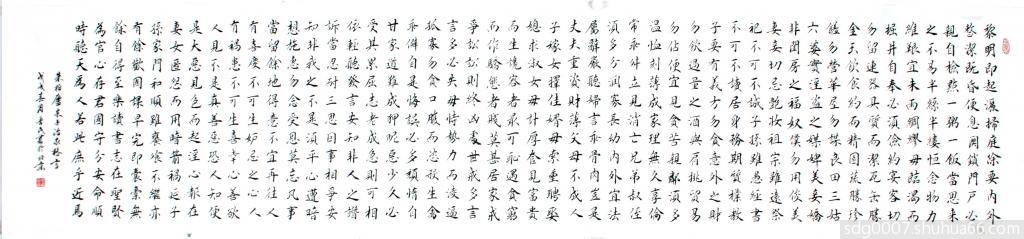 黎明即起灑掃庭除要內外
整潔既昏便息關鎖門戶必
親自檢點一粥一飯當思來
之不易半絲半縷恒念物力
維艱宜未雨綢繆毋臨渴而
掘井自奉必須儉約宴客切
勿留連器具質而潔瓦缶勝
金玉飲食約而精園蔬勝珍
饈勿營華屋勿謀良田三姑
六婆實淫盜之媒婢美妾嬌
非閨房之福奴僕勿用俊美
妻妾切忌艷妝祖宗雖遠祭
祀不可不誠子孫雖愚經書
不可不讀居身務期質樸教
子要有義方勿貪意外之財
勿飲過量之酒與肩挑貿易
勿佔便宜見貧苦親鄰須多
溫恤刻薄成家理無久享倫
常乖舛立見消亡兄弟叔侄
須多分潤寡長幼內外宜法
屬辭嚴聽婦言乖骨肉豈是
丈夫重資財薄父母不成人
子嫁女擇佳婿毋索重聘娶
媳求淑女毋計厚奩見富貴
而生讒容者最可恥遇貧窮
而作驕態者賤莫甚居家戒
爭訟訟則終凶處世戒多言
言多必失毋恃勢力而凌逼
孤寡勿貪口腹而恣殺生禽
乖僻自是悔誤必多頹惰自
甘家道難成狎昵惡少久必
受其累屈志老成急則可相
依輕聽發言安知非人之譖
訴當忍耐三思因事相爭安
知非我之不是須平心遭時
想施惠勿念受恩莫忘凡事
當留餘地得意不宜再往人
有喜慶不可生妒忌之心人
有禍患不可生喜幸心善欲
人見不是真善惡恐人知便
是大惡見色而起淫心報在
妻女匿怨而用暗箭禍延子
孫家門和順雖饔飧不繼亦
有餘歡國課早完即囊橐無
餘自得至樂讀書志在聖賢
為官心存君國守分安命順
時聽天為人若此庶乎近焉
朱柏廬朱子治家格言
戊戌
sdg0007.shuhua66.com